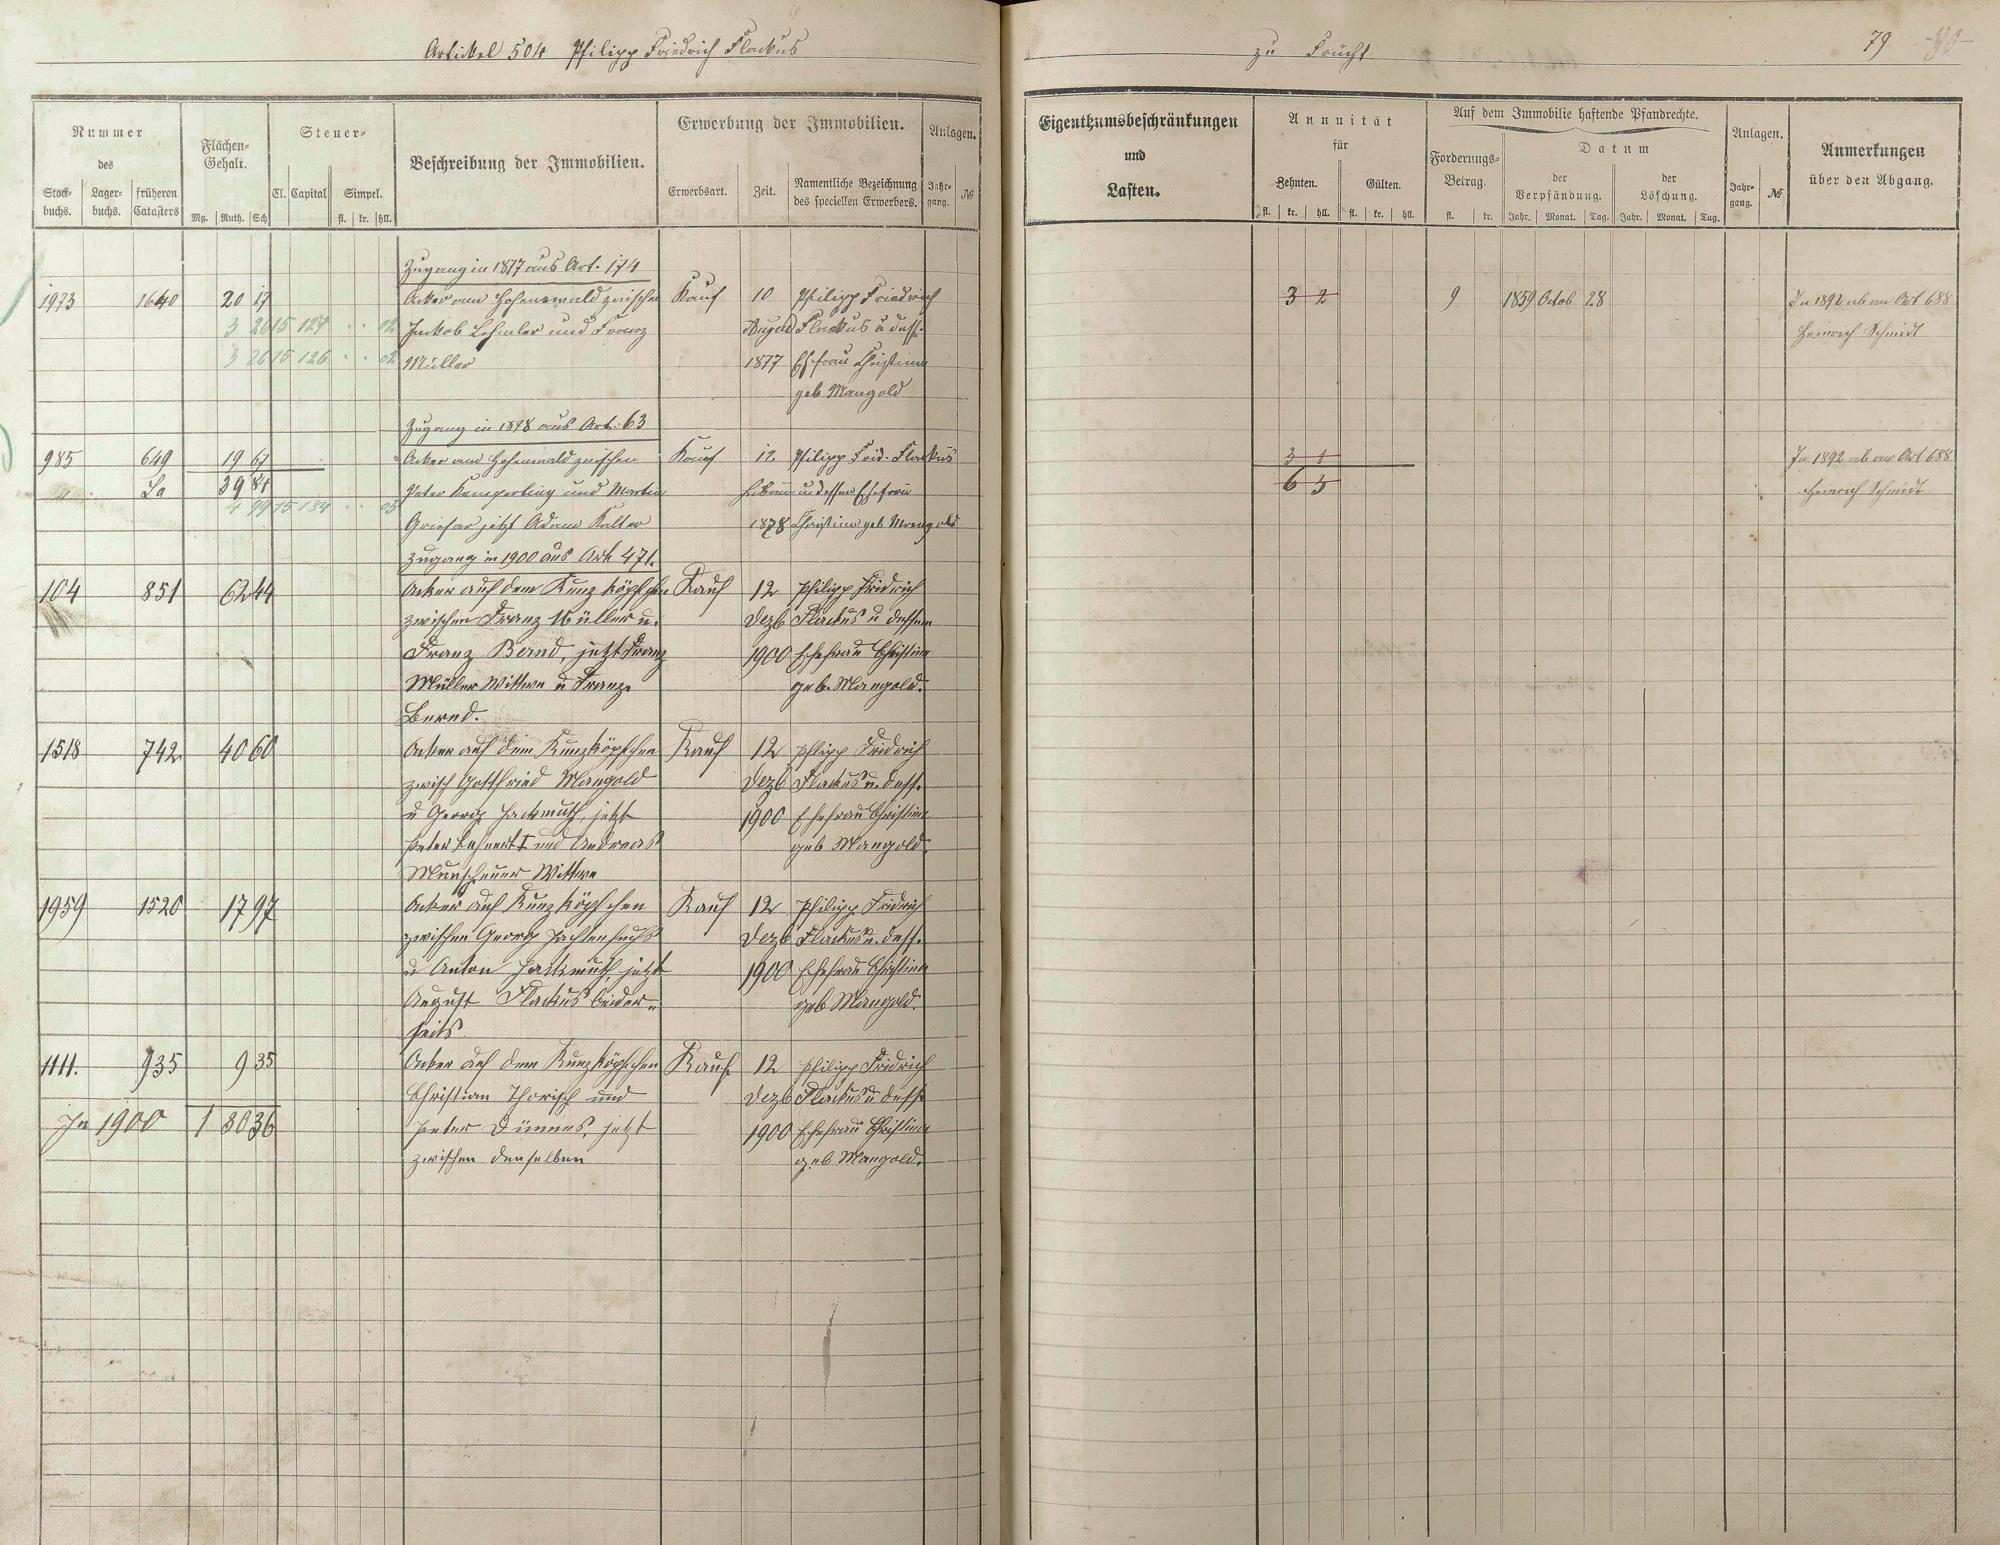 Artikel 504 Philipp Friedrich Flackus
Nummer
des
Stock-
buchs.
Lager-
buchs.
früheren
Catasters
Flächen-
Gehalt.
Mg. Ruth. Sch
Steuer-
Cl. Capital Simpel.
fl. kr. hll.
Beschreibung der Immobilien.
Erwerbung der Immobilien.
Erwerbsart. Zeit.
Namentliche Bezeichnung
des speciellen Erwerbers.
Anlagen.
Jahr-
gang.
№
Zugang in 1877 aus Art. 174
1973 1640 20 17 Acker am Hohenwald zwischen Kauf 10 Philipp Friedrich
3 26 15 127 02 Jackob Lehmler und Franz August Flackus u dess.
3 26 15 126 02 Müller 1877 Ehefrau Christina
geb Mangold
Zugang in 1878 aus Art. 63
985 649 19 67 Acker am Hohenwald zwischen Kauf 12 Philipp Frid. Flackus
Sa 39 84 Peter Kemperling und Martin Febrav und dessen Ehefrau
4 99 15 184 03
jetzt Adam Kalter 1878 Christina geb Mangold
Zugang in 1900 aus Art. 471.
104 851 62 44 Acker auf dem Kunzköpfchen Kauf 12 Philipp Fridrich
zwischen Franz Müller u. Dezb Flackus u dessen
Franz Bernd, jetzt Franz 1900 Ehefrau Christina
Müller Wittwe u Franz geb. Mangold.
Bernd.
1518 742 40 60 Acker auf dem Kunzköpfchen Kauf 12 Philipp Fridrich
zwisch Gottfried Mangold Dezb Flackus u. dess.
u Georg Hackmuth, jetzt 1900 Ehefrau Christina
Peter Lehnert I und Andreas geb Mangold.
Wittwe
1959 1520 17 97 Acker auf Kunzköpfchen Kauf 12 Philipp Fridrich
zwischen Georg Dezb Flackus u. dess.
u Anton Hackmuth, jetzt 1900 Ehefrau Christina
August Flackus beider-
geb Mangold.
seits
1111. 935 9 35 Acker auf dem Kunzköpfchen Kauf 12 Philipp Fridrich
Christian Thorisch und Dezb Flackus u dess.
In 1900 1 30 36 Peter Dinnes, jetzt 1900 Ehefrau Christina
zwischen denselben geb Mangold.
zu Frücht 79
Eigenthumsbeschränkungen
und
Lasten.
Annuität
für
Zehnten. Gülten.
fl. kr. hll. fl. kr. hll.
Auf dem Immobilie haftende Pfandrechte.
Forderungs-
Betrag.
fl. kr.
Datum
der
Verpfändung.
Jahr. Monat. Tag.
der
Löschung.
Jahr. Monat. Tag.
Anlagen.
Jahr-
gang.
№
Anmerkungen
über den Abgang.
3 2 9 1859 Octob 28 In 1892 ab an Art 688
Heinrich Schmidt
3 1 In 1892 ab an Art 688
6 3 Heinrich Schmidt